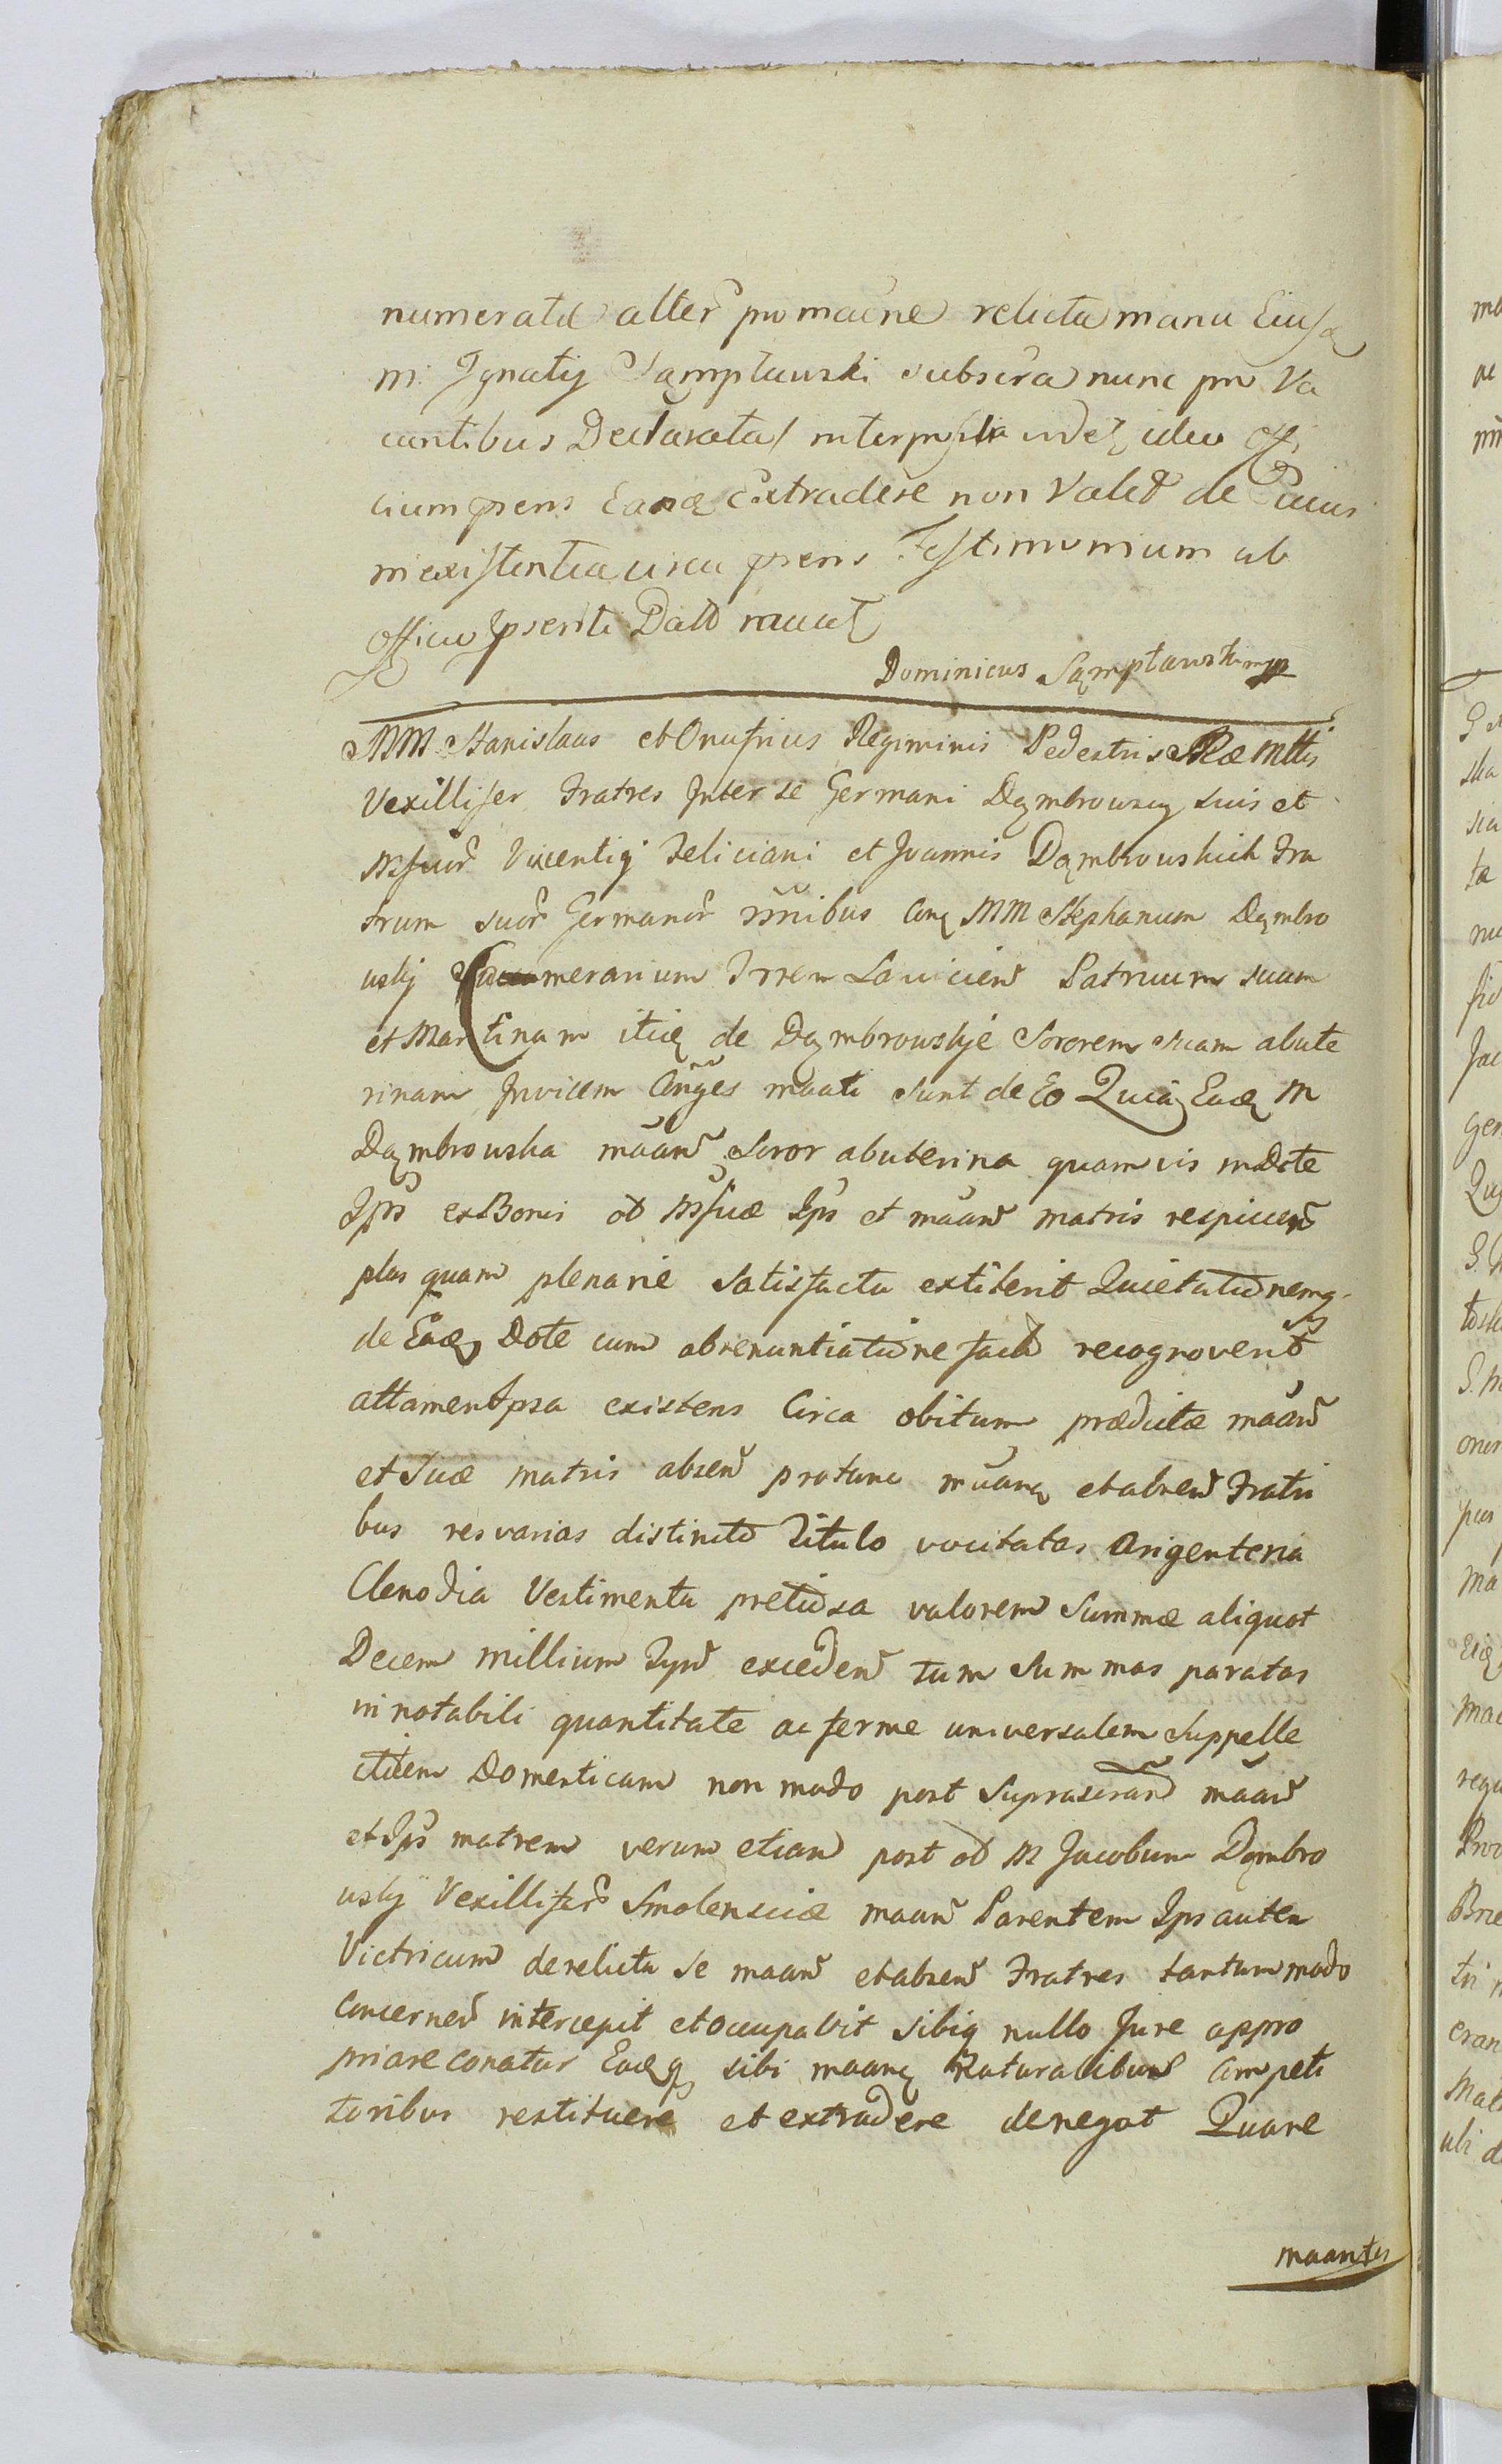 numerata alter pro maene relicta manu Eiusd
M: Ignatij Sąmpławski subscra nunc pro Va
cantibus Declarata interposita videt ideo Offi
cium prens Easd Extradere non Valet de Quius
inexistentia circa prens Testimonium ab
Officio prenti Datt maat
Dominicus Sąmpławski mp
MM Stanislaus et Onufrius Regiminis Pedestris Rae Mttis
Vexillifer Fratres Inter se Germani Dąmbrowscy suis et
Msuor Vincentij Feliciani et Joannis Dąmbrowskich Fra
trum suor Germanor nnibus Conq MM Stephanum Dąmbro
wskj Succamerarium Trrem Lovicien Patruum suum
et Martinam itid de Dąmbrowskje Sororem suam abute
rinam Invicem Conges maati sunt de Eo Quia Ead M
Dąmbrowska maan Soror abuterina quamvis in Dote
Ips ex Bonis od Msuae Ips et maan matris respicien
plus quam plenarie satisfacta extiterit Quietationemq
de Ead Dote cum abrenuntiatione facta recognoverit
attamen Ipsa existens Circa obitum praedictae maan
et Suae matris absen protunc maanq et absen Fratri
bus res varias distincto Titulo vocitatas Argenteria
Clenodia Vestimenta pretiosa valorem Summae aliquot
Decem millium Typ exceden tum Summas paratas
in notabili quantitate ac ferme universalem Suppelle
ctilem Domesticam non modo post Suprascran maan
et Ips matrem verum etiam post od M Jacobum Dąmbro
wskj Vexillifer Smolensciae maan Parentem Ips autem
Victricum derelicta se maan et absen Fratres tantummodo
Concernen intercepit et occupavit sibiq nullo Jure appro
priare conatur Eadq sibi maanq Naturalibus Competi
toribus restituere et extradere denegat Quare
maantes